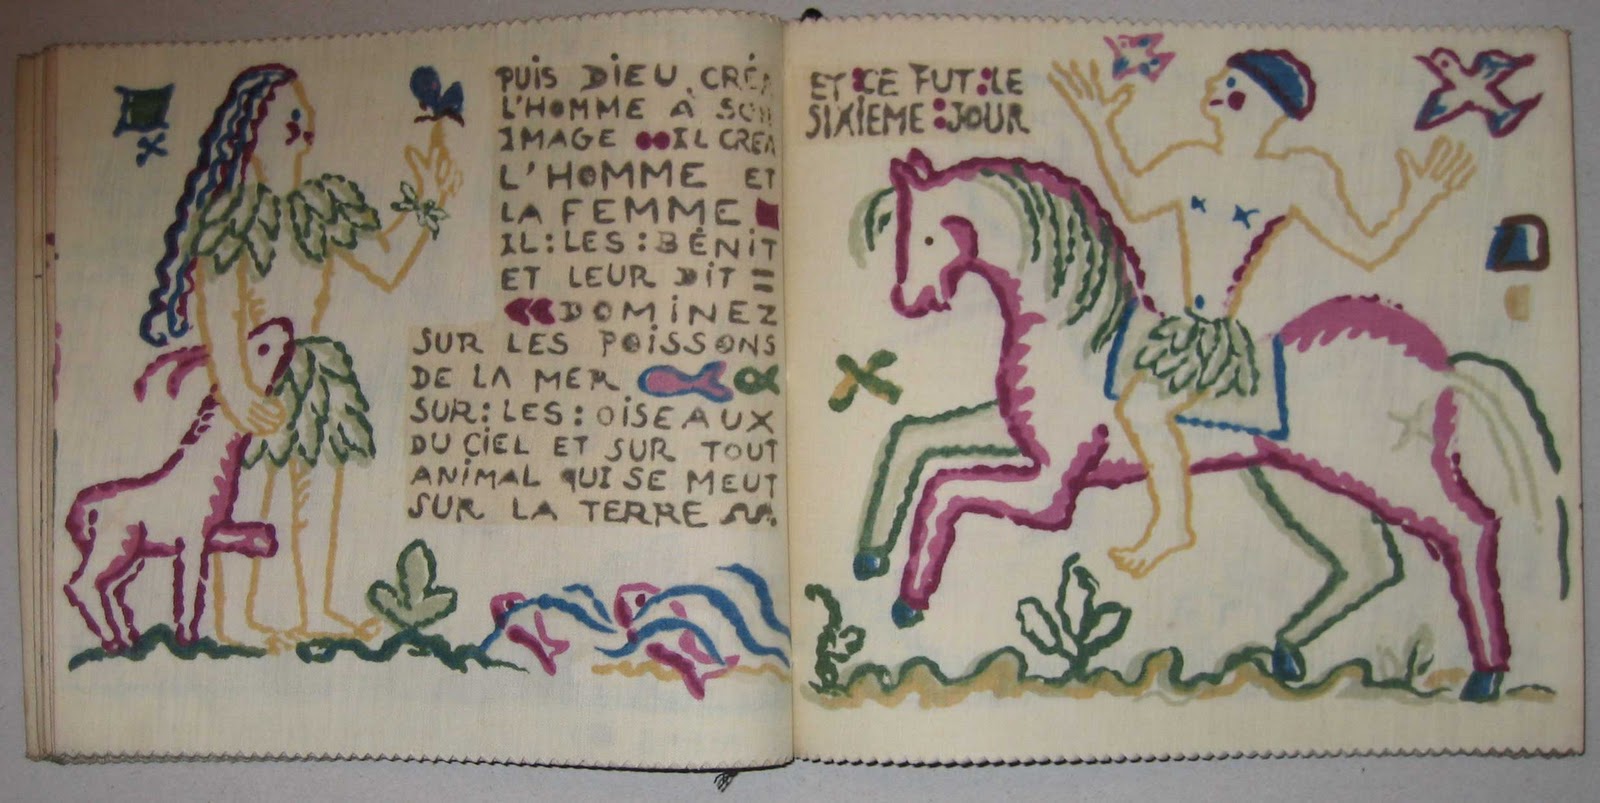 PUIS DIEU CRÉA
L'HOMME À SON
IMAGE IL CREA
L'HOMME ET
LA FEMME
IL:LES:BÉNIT
ET LEUR DIT =
«DOMINEZ
SUR LES POISSONS
DE LA MER
SUR:LES:OISEAUX
DU CIEL ET SUR TOUT
ANIMAL QUI SE MEUT
SUR LA TERRE
ET:CE FUT:LE
SIXIEME:JOUR